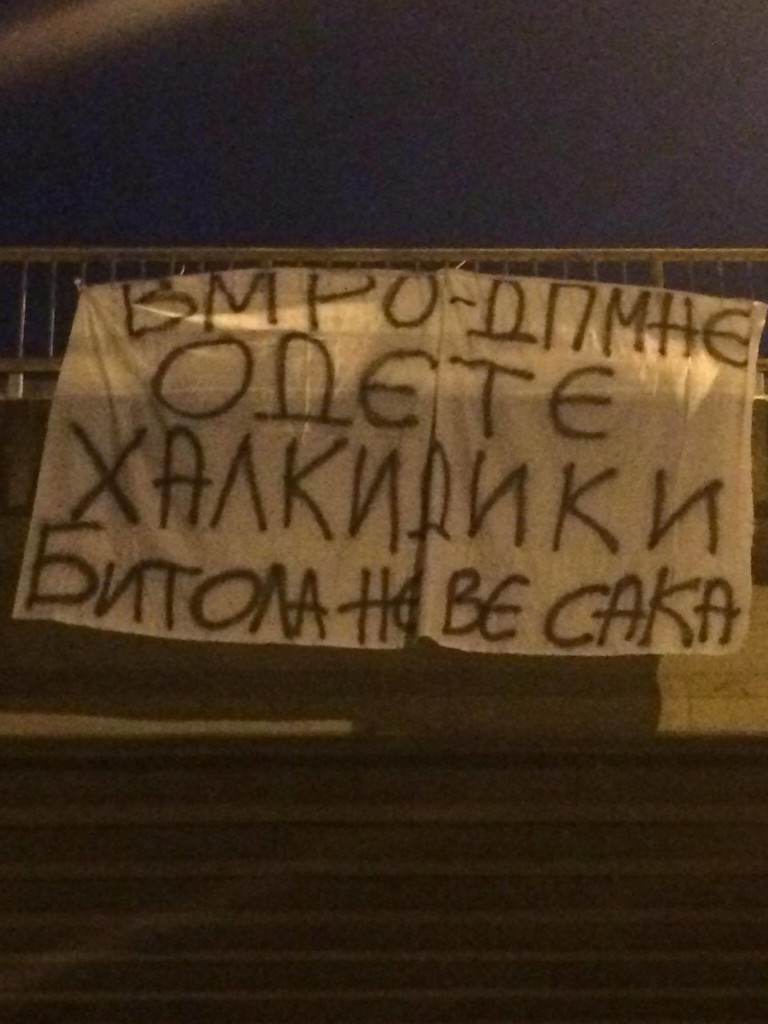 ВМРО-ДПМНЕ
ОДЕТЕ
ХАЛКИДИКИ
БИТОЛА НЕ ВЕ САКА